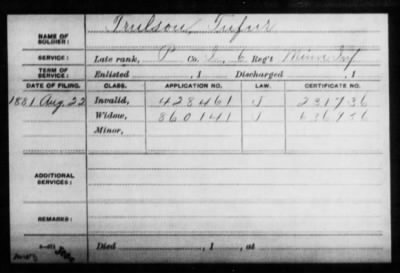 NAME OF SOLDIER: Trulson,
SERVICE: Late rank, P Co. , 6 Reg't Minn Inf
TERM OF SERVICE: Enlisted , 1 Discharged , 1
DATE OF FILING. CLASS. APPLICATION NO. LAW. CERTIFICATE NO.
1881 Aug. 22 Invalid, 428461 J 231736
Widow, 860141 J
Minor,
ADDITIONAL SERVICES:
REMARKS:
Died , 1 , at